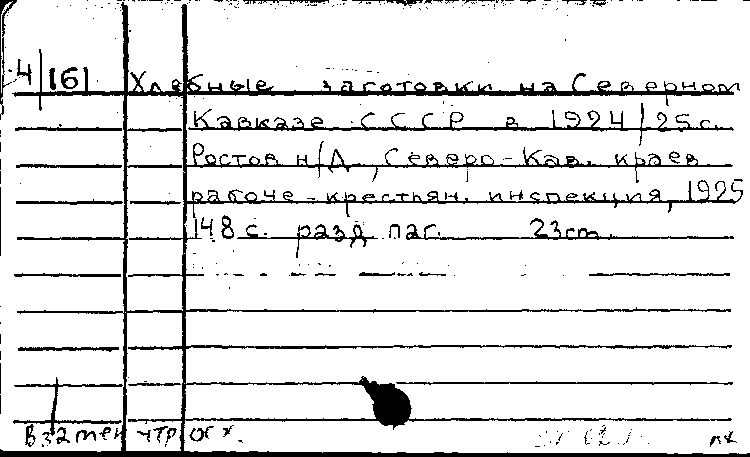 4/161 Хлебные заготовки на Северном
Кавказе СССР в 1924/25 г.
Ростов н/Д, Северо-Кав. краев.
рабоче-крестьян. инспекция, 1925
148 с. разд паг. 23cm.
Взамен
пк